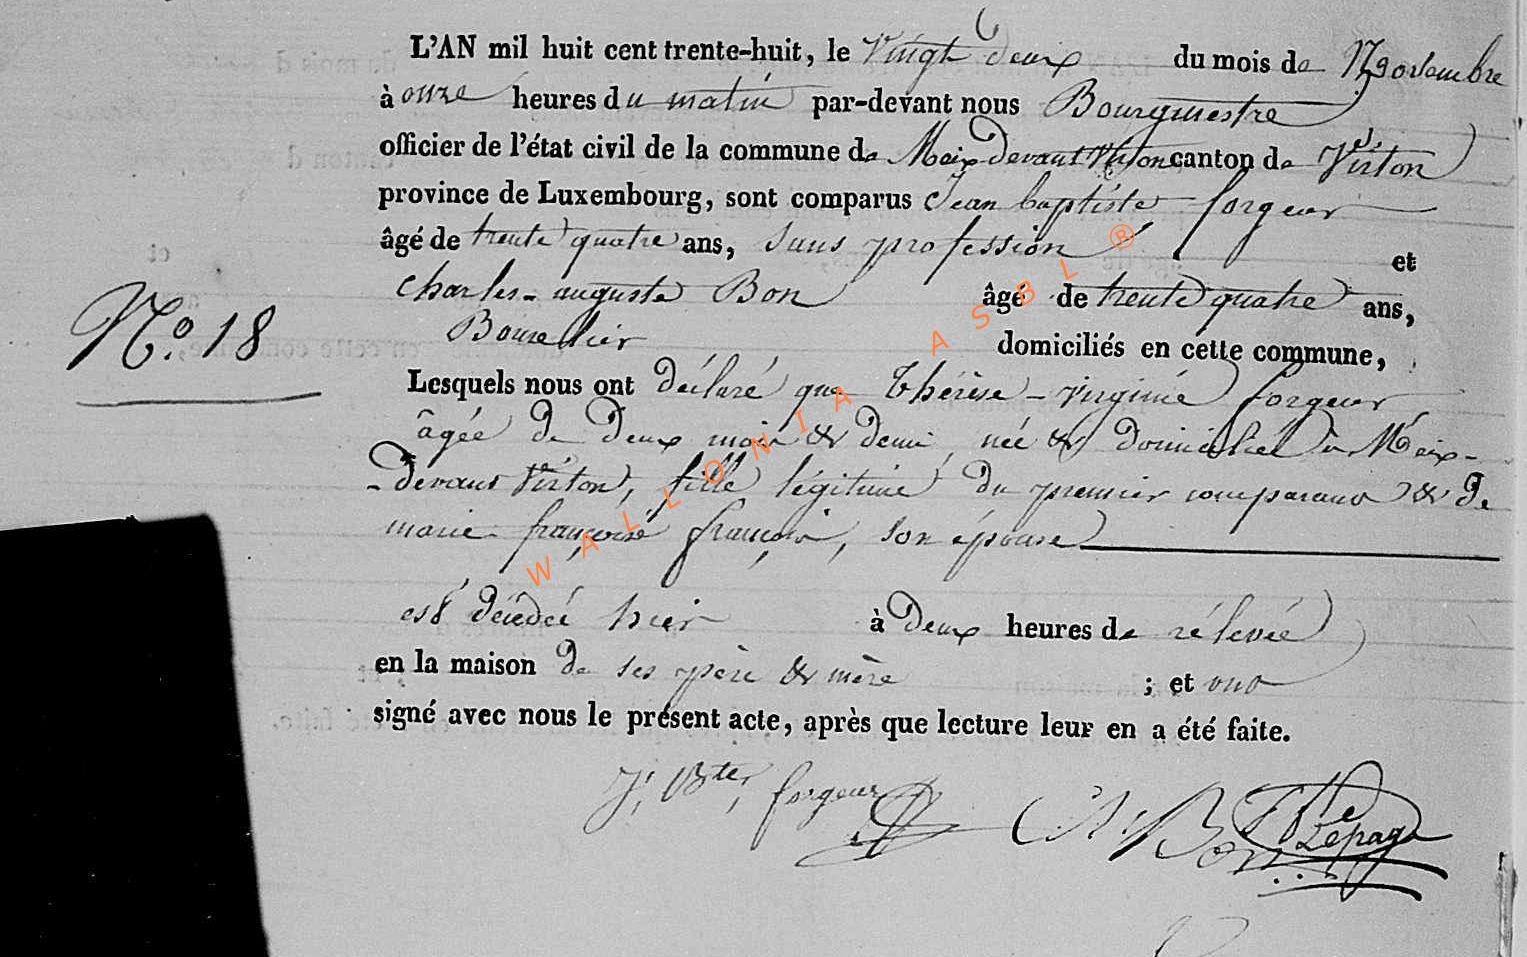 L'AN mil huit cent trente-huit, le Vingt deux du mois de Novembre
à onze heures du matin par-devant nous Bourgmestre
officier de l'état civil de la commune de Meix Devant Virton canton de Virton
province de Luxembourg, sont comparus Jean baptiste forgeur
âgé de trente quatre ans, sans profession et
charles-auguste Bon âgé de trente quatre ans,
Bourellier domiciliés en cette commune,
N.o 18
Lesquels nous ont déclaré que thérèse-virginie forgeur
âgée de Deux mois & demi, née & domiciliée à Meix-
-devant Virton, fille légitime du premier comparant & De
marie françoise françois, son épouse
est décédée hier à Deux heures de rélevée
en la maison de ses père & mère ; et ont
signé avec nous le présent acte, après que lecture leur en a été faite.
J. Bte, forgeur Ch Bon Lepage
WALLONIA ASBL ®